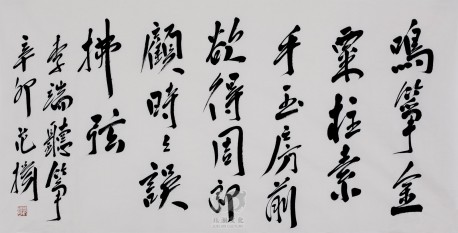 鳴箏金
粟柱素
手玉房前
欲得周郎
顧時時誤
拂弦
李端聽箏
辛卯范揚